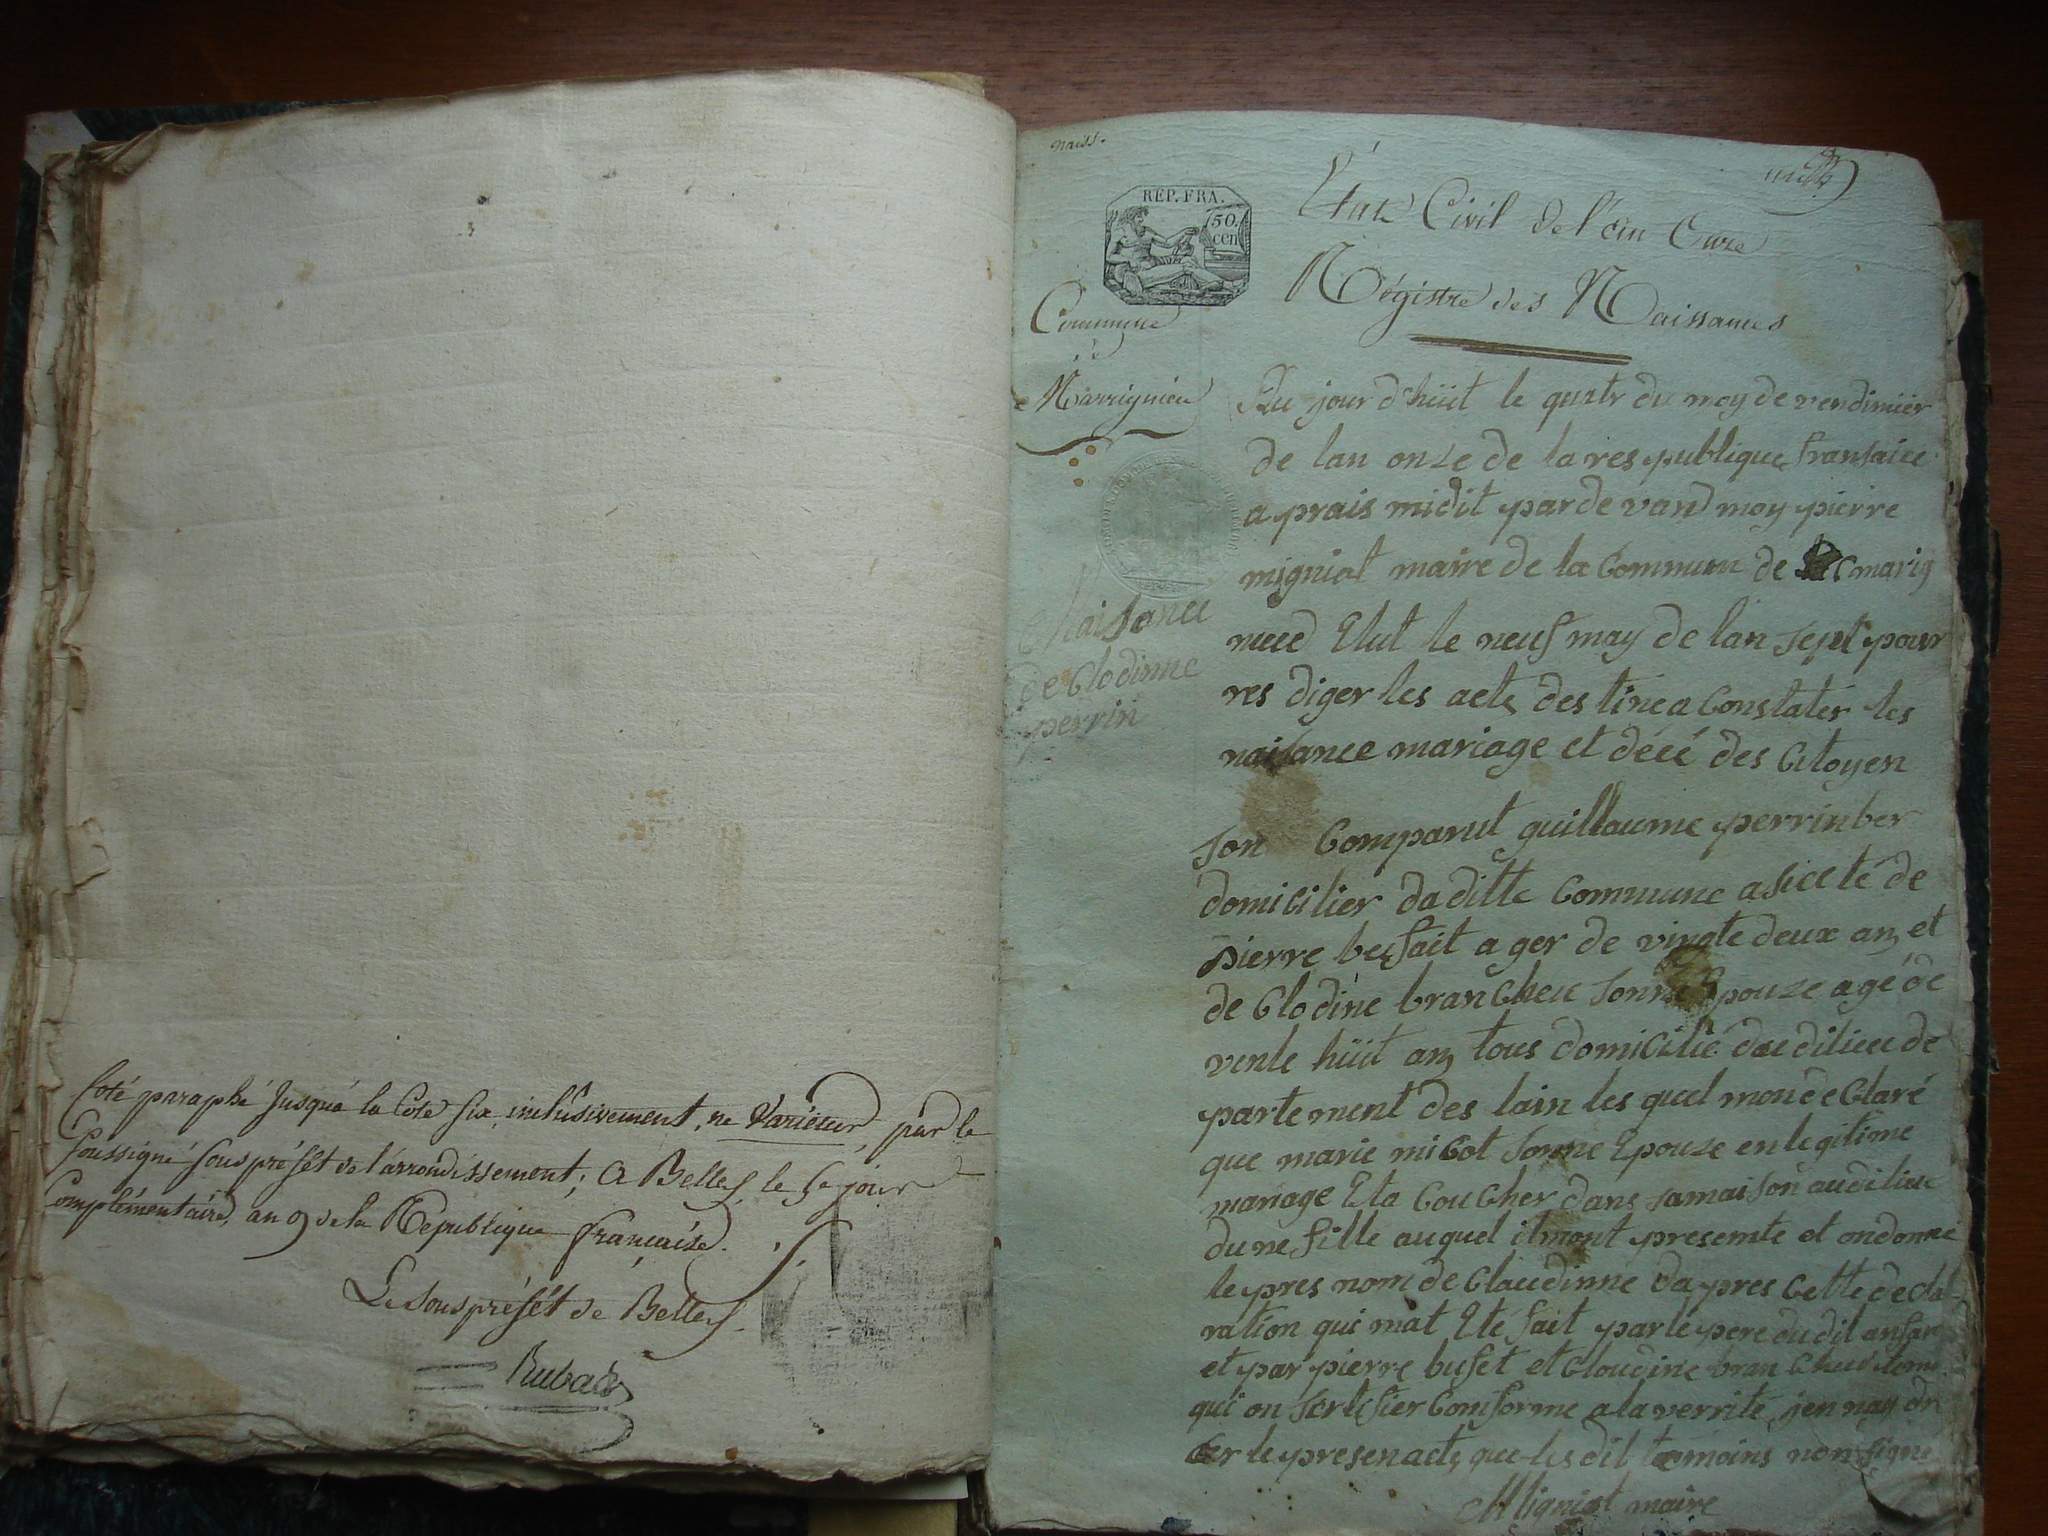 Coté paraphé Jusqu'à la Cote six, inclusivement, ne Varietur, par le
Soussigné sous préfét de l'arrondissement; A Belley le 5e jour
Complémentaire, an 9 de la République française.
Le sous préfét de Belley
Rubat
naiss.
REP. FRA.
50.
cen
État Civil de l'an Onze
Régistre des Naissances
Commune
de
Marrignieu
Naisance
de Clodinne
perrin
Au jour d'hüit le quatr du moy de vendimiér
de lan onze de la respublique fransaice
a prais midit parde vand moy pierre
migniot maire de la Commune de marig
nieed Elut le neuf may de lan sept pour
res diger les acte des tinea Constatér les
naisance mariage et décé des Citoyen
son Comparut guillaume perrin ber
domicilier da ditte Commune asiceté de
pierre befait a ger de vingte deux an et
de Clodine brancheu sonne Epouze agé de
vente hüit an tous domicilié dudilieu de
partement des lain les quel mon de Claré
que marie micot sonne Epouze en legitime
mariage Eta Coucher dans samaison audilieu
dune fille auquel il mont presente et on donné
le pres nom de Claudinne da pres Cette de cla
ration qui mat Eté fait par le pere du dit anfan
et par pierre bufet et Cloudine brancheu
qui on sertifier Comforme a la verrite jen nay
le presen acte que les dit temoins non signe
Migniot maire